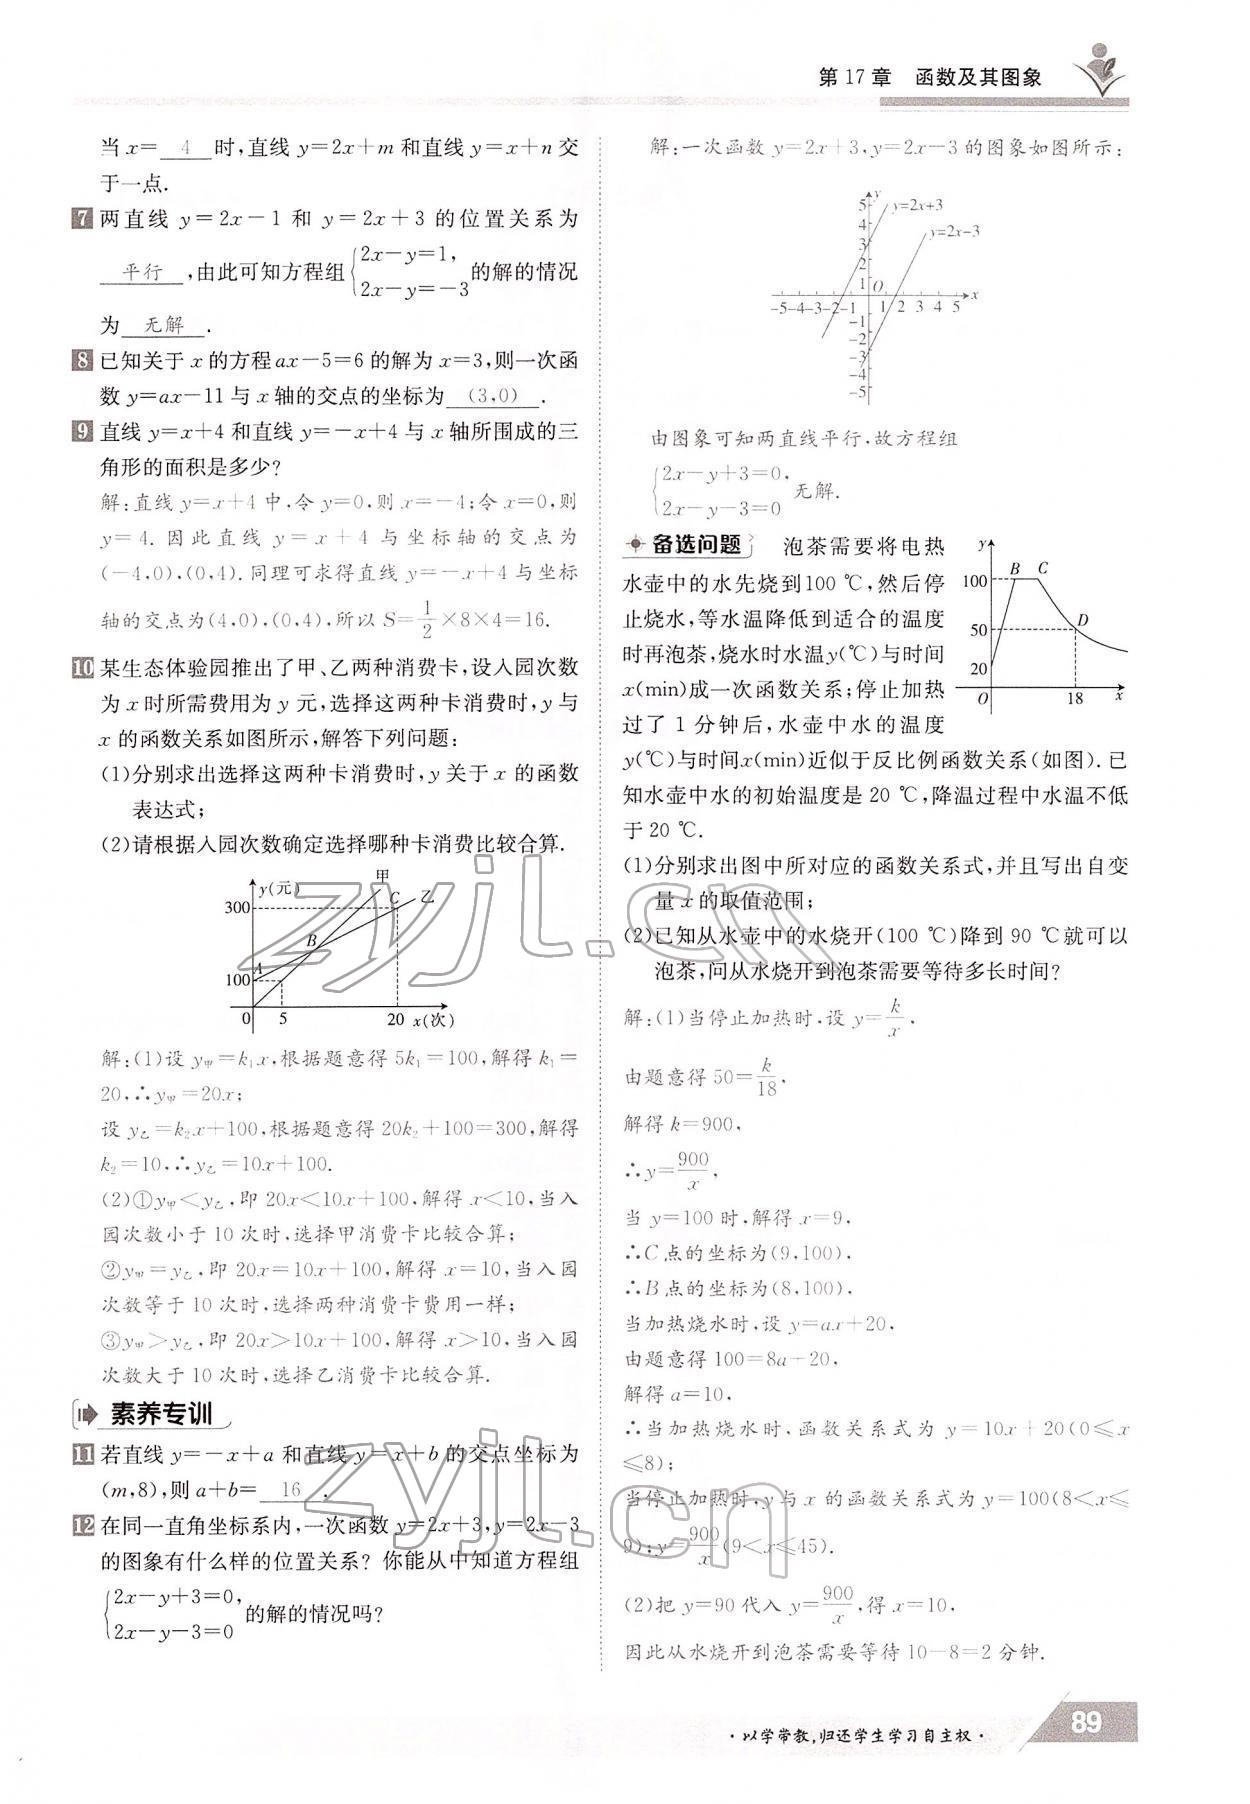 第 17 章　函数及其图象
当 x= 4 时,直线 y=2x+m 和直线 y=x+n 交
于一点.
7 两直线 y=2x-1 和 y=2x+3 的位置关系为
平行 ,由此可知方程组 { 2x-y=1, 2x-y=-3 的解的情况
为 无解 .
8 已知关于 x 的方程 ax-5=6 的解为 x=3,则一次函
数 y=ax-11 与 x 轴的交点的坐标为 (3,0) .
9 直线 y=x+4 和直线 y=-x+4 与 x 轴所围成的三
角形的面积是多少?
解:直线 y=x+4 中,令 y=0,则 x=-4;令 x=0,则
y=4. 因此直线 y=x+4 与坐标轴的交点为
(-4,0),(0,4).同理可求得直线 y=-x+4 与坐标
轴的交点为(4,0),(0,4),所以 S=1/2×8×4=16.
10 某生态体验园推出了甲、乙两种消费卡,设入园次数
为 x 时所需费用为 y 元,选择这两种卡消费时,y 与
x 的函数关系如图所示,解答下列问题:
(1)分别求出选择这两种卡消费时,y 关于 x 的函数
表达式;
(2)请根据入园次数确定选择哪种卡消费比较合算.
y(元) 甲
300 C 乙
B
100 A
0 5 20 x(次)
解:(1)设 y甲=k₁x,根据题意得 5k₁=100,解得 k₁=
20,∴y甲=20x;
设 y乙=k₂x+100,根据题意得 20k₂+100=300,解得
k₂=10,∴y乙=10x+100.
(2)①y甲<y乙,即 20x<10x+100,解得 x<10,当入
园次数小于 10 次时,选择甲消费卡比较合算;
②y甲=y乙,即 20x=10x+100,解得 x=10,当入园
次数等于 10 次时,选择两种消费卡费用一样;
③y甲>y乙,即 20x>10x+100,解得 x>10,当入园
次数大于 10 次时,选择乙消费卡比较合算.
素养专训
11 若直线 y=-x+a 和直线 y=x+b 的交点坐标为
(m,8),则 a+b= 16 .
12 在同一直角坐标系内,一次函数 y=2x+3,y=2x-3
的图象有什么样的位置关系? 你能从中知道方程组
{ 2x-y+3=0, 2x-y-3=0 的解的情况吗?
解:一次函数 y=2x+3,y=2x-3 的图象如图所示:
y
5 y=2x+3
4 y=2x-3
3
2
1 O
-5-4-3-2-1 1 2 3 4 5 x
-1
-2
-3
-4
-5
由图象可知两直线平行,故方程组
{ 2x-y+3=0, 2x-y-3=0 无解.
备选问题　泡茶需要将电热
水壶中的水先烧到100 ℃,然后停
止烧水,等水温降低到适合的温度
时再泡茶,烧水时水温y(℃)与时间
x(min)成一次函数关系;停止加热
过了 1 分钟后,水壶中水的温度
y(℃)与时间x(min)近似于反比例函数关系(如图).已
知水壶中水的初始温度是 20 ℃,降温过程中水温不低
于 20 ℃.
y
100 B C
50 D
20
O 18 x
(1)分别求出图中所对应的函数关系式,并且写出自变
量 x 的取值范围;
(2)已知从水壶中的水烧开(100 ℃)降到 90 ℃就可以
泡茶,问从水烧开到泡茶需要等待多长时间?
解:(1)当停止加热时,设 y=k/x,
由题意得 50=k/18,
解得 k=900,
∴y=900/x,
当 y=100 时,解得 x=9,
∴C 点的坐标为(9,100),
∴B 点的坐标为(8,100),
当加热烧水时,设 y=ax+20,
由题意得 100=8a-20,
解得 a=10,
∴当加热烧水时,函数关系式为 y=10x+20(0≤x
≤8);
当停止加热时,y 与 x 的函数关系式为 y=100(8<x≤
9);y=900/x(9<x≤45).
(2)把 y=90 代入 y=900/x,得 x=10,
因此从水烧开到泡茶需要等待 10-8=2 分钟.
·以学带教,归还学生学习自主权·
89
zyjl.cn
zyjl.cn